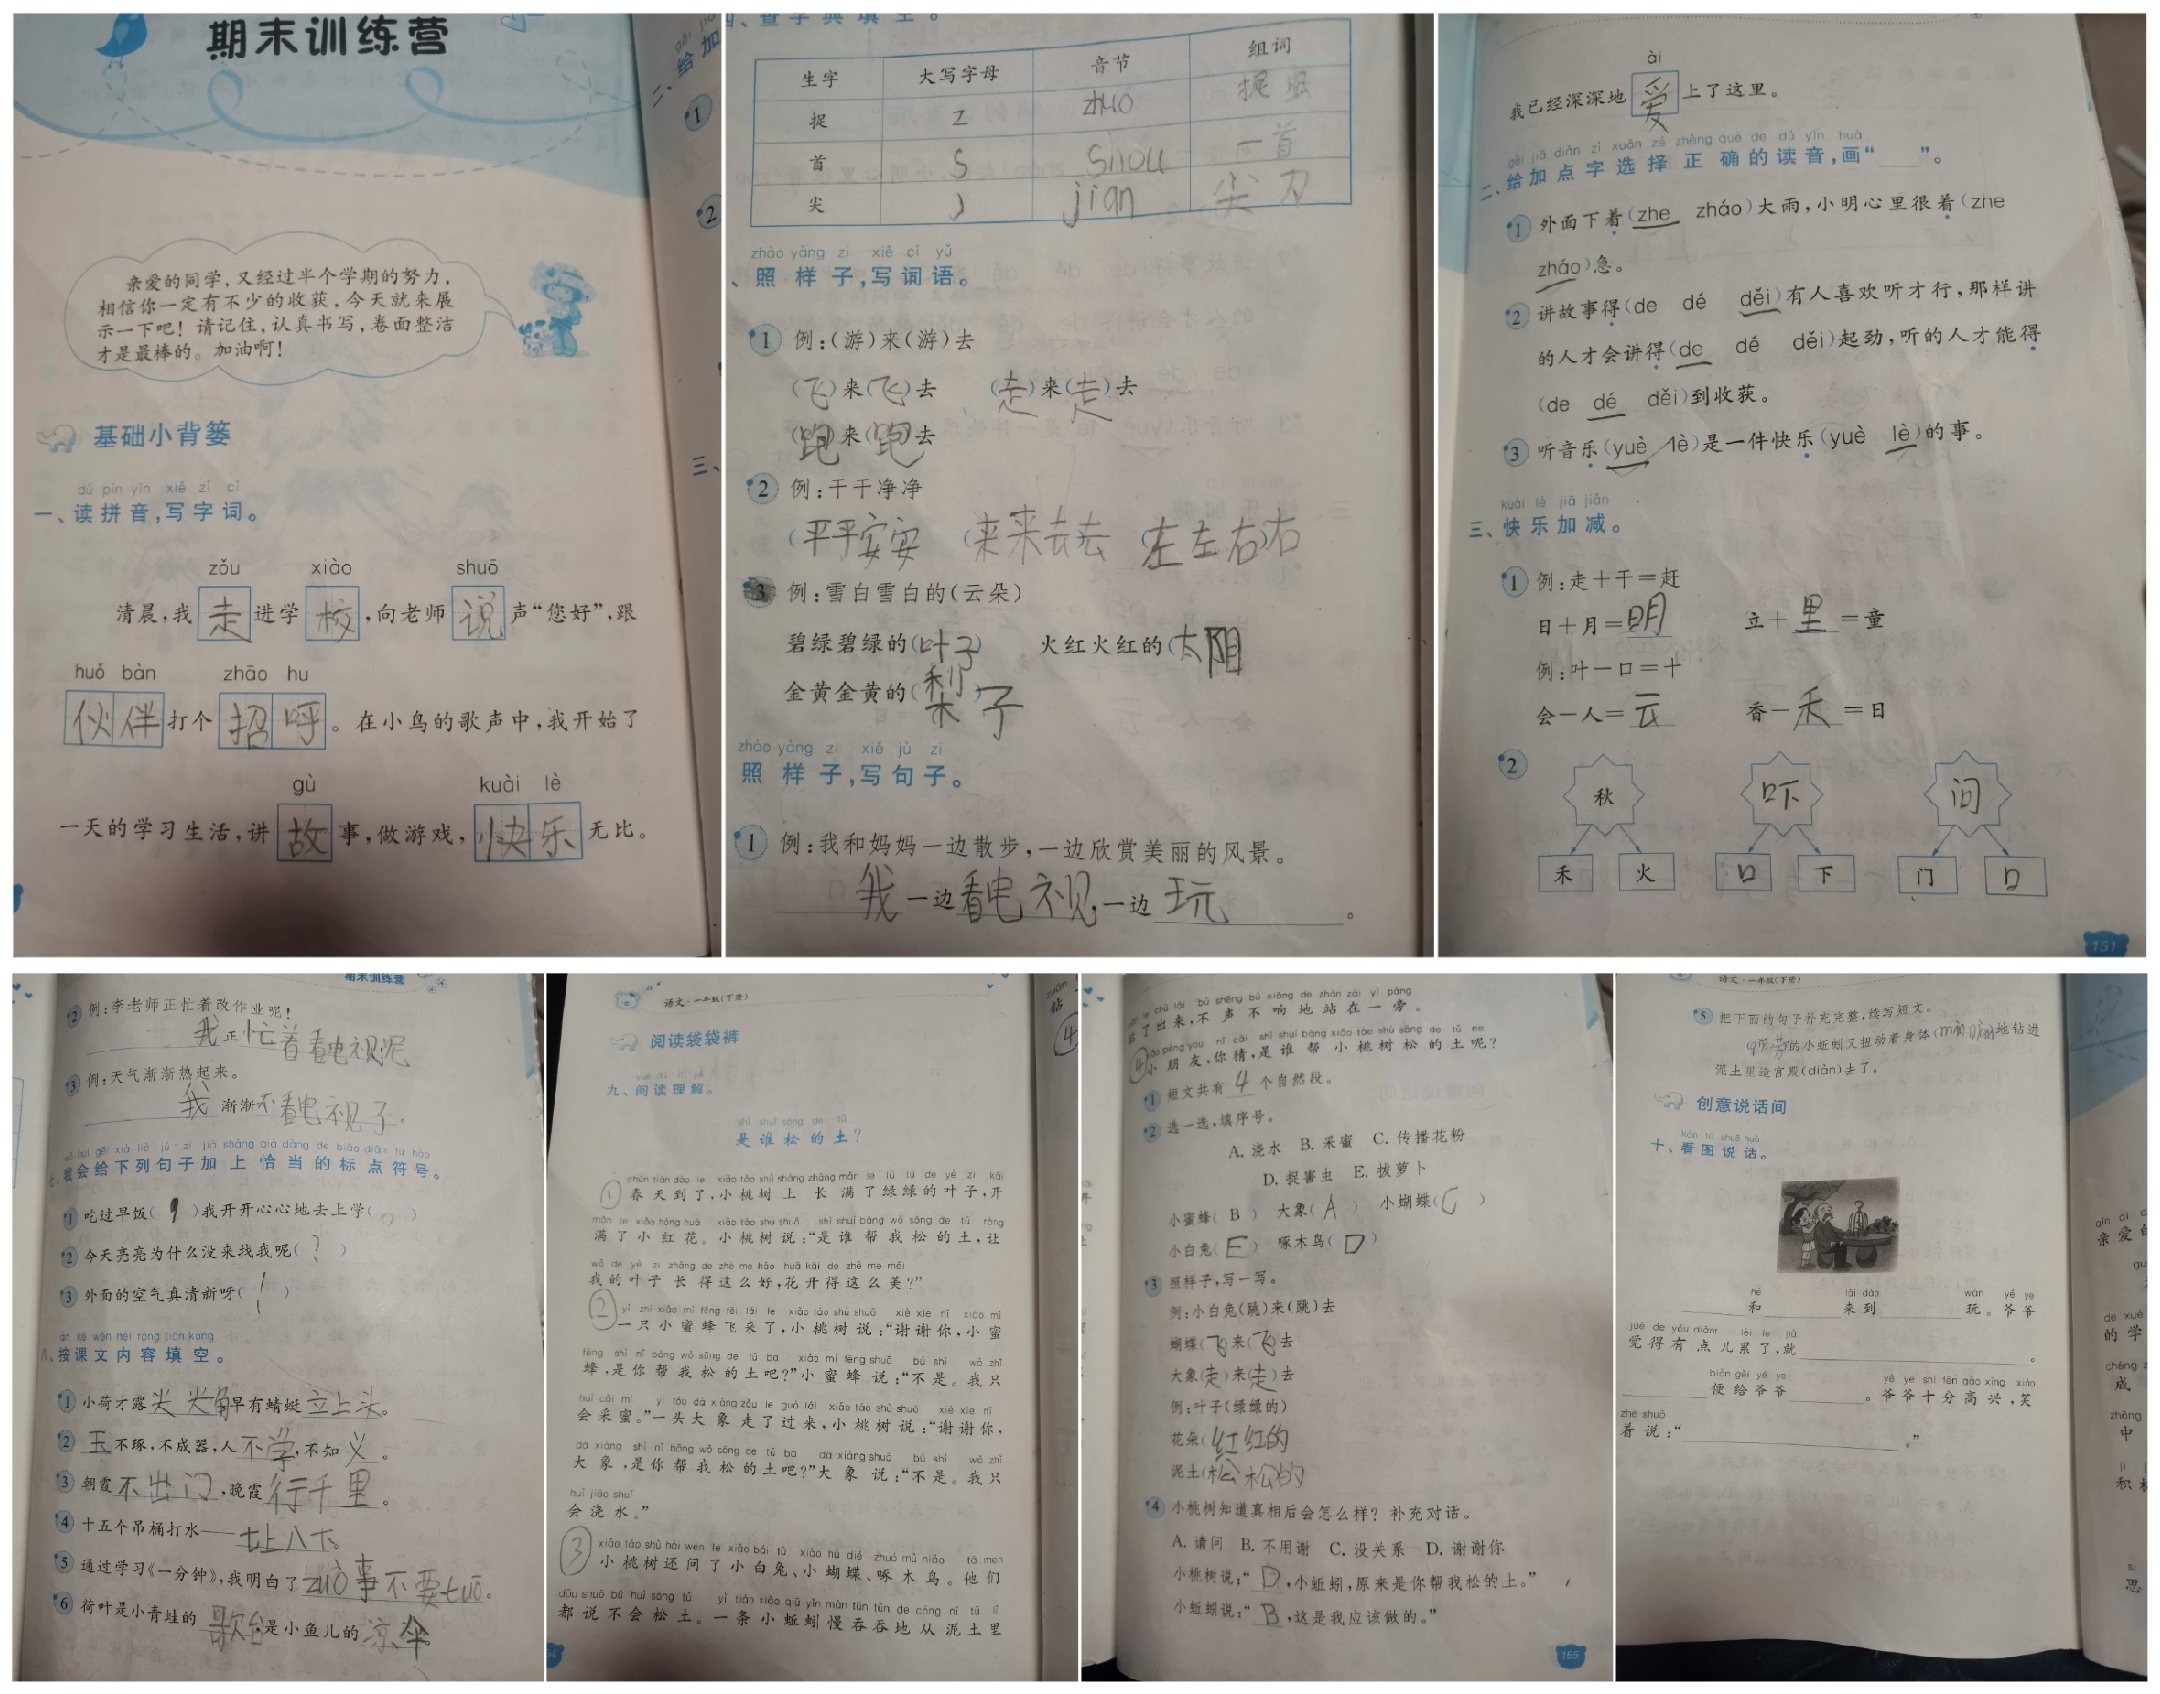 期末训练营
亲爱的同学，又经过半个学期的努力，
相信你一定有不少的收获，今天就来展
示一下吧！请记住，认真书写，卷面整洁
才是最棒的。加油啊！
基础小背篓
dú pīn yīn xiě zì cí
一、读拼音，写字词。
zǒu xiào shuō
清晨，我走进学校，向老师说声“您好”，跟
huǒ bàn zhāo hu
伙伴打个招呼。在小鸟的歌声中，我开始了
gù kuài lè
一天的学习生活，讲故事，做游戏，快乐无比。
四、查字典填空。
生字 大写字母 音节 组词
捉 Z zhuo 捉虫
首 S shou 一首
尖 J jian 尖刀
zhào yàng zi xiě cí yǔ
、照样子，写词语。
1 例：（游）来（游）去
（飞）来（飞）去 （走）来（走）去
（跑）来（跑）去
2 例：干干净净
（平平安安 （来来去去 左左右右
3 例：雪白雪白的（云朵）
碧绿碧绿的（叶子） 火红火红的（太阳
金黄金黄的（梨子
zhào yàng zi xiě jù zi
照样子，写句子。
1 例：我和妈妈一边散步，一边欣赏美丽的风景。
我一边看电视，一边玩。
ài
我已经深深地爱上了这里。
gěi jiā diǎn zì xuǎn zé zhèng què de dú yīn huà
二、给加点字选择正确的读音，画“ ”。
1 外面下着（zhe zháo）大雨，小明心里很着（zhe
zháo）急。
2 讲故事得（de dé děi）有人喜欢听才行，那样讲
的人才会讲得（de dé děi）起劲，听的人才能得
（de dé děi）到收获。
3 听音乐（yuè lè）是一件快乐（yuè lè）的事。
kuài lè jiā jiǎn
三、快乐加减。
1 例：走＋干＝赶
日＋月＝明 立＋里＝童
例：叶－口＝十
会－人＝云 香－禾＝日
2
秋 吓 问
禾 火 口 下 门 口
151
期末训练营
2 例：李老师正忙着改作业呢！
我正忙着看电视呢
3 例：天气渐渐热起来。
我渐渐不看电视了。
wǒ huì gěi xià liè jù zi jiā shàng qià dàng de biāo diǎn fú hào
七、我会给下列句子加上恰当的标点符号。
1 吃过早饭（，）我开开心心地去上学（。）
2 今天亮亮为什么没来找我呢（？）
3 外面的空气真清新呀（！）
àn kè wén nèi róng tián kòng
八、按课文内容填空。
1 小荷才露尖尖角早有蜻蜓立上头。
2 玉不琢，不成器，人不学，不知义。
3 朝霞不出门，晚霞行千里。
4 十五个吊桶打水——七上八下。
5 通过学习《一分钟》，我明白了zuò事不要tuō。
6 荷叶是小青蛙的歌台，是小鱼儿的凉伞。
语文·一年级（下册）
阅读袋袋裤
yuè dú lǐ jiě
九、阅读理解。
shì shuí sōng de tǔ
是谁松的土？
chūn tiān dào le xiǎo táo shù shàng zhǎng mǎn le lǜ lǜ de yè zi kāi
① 春天到了，小桃树上长满了绿绿的叶子，开
mǎn le xiǎo hóng huā xiǎo táo shù shuō shì shuí bāng wǒ sōng de tǔ ràng
满了小红花。小桃树说：“是谁帮我松的土，让
wǒ de yè zi zhǎng de zhè me hǎo huā kāi de zhè me měi
我的叶子长得这么好，花开得这么美？”
yì zhī xiǎo mì fēng fēi lái le xiǎo táo shù shuō xiè xie nǐ xiǎo mì
② 一只小蜜蜂飞来了，小桃树说：“谢谢你，小蜜
fēng shì nǐ bāng wǒ sōng de tǔ ba xiǎo mì fēng shuō bú shì wǒ zhǐ
蜂，是你帮我松的土吧？”小蜜蜂说：“不是。我只
huì cǎi mì yì tóu dà xiàng zǒu le guò lái xiǎo táo shù shuō xiè xie nǐ
会采蜜。”一头大象走了过来，小桃树说：“谢谢你，
dà xiàng shì nǐ bāng wǒ sōng de tǔ ba dà xiàng shuō bú shì wǒ zhǐ
大象，是你帮我松的土吧？”大象说：“不是。我只
huì jiāo shuǐ
会浇水。”
xiǎo táo shù hái wèn le xiǎo bái tù xiǎo hú dié zhuó mù niǎo tā men
③ 小桃树还问了小白兔、小蝴蝶、啄木鸟。他们
dōu shuō bú huì sōng tǔ yì tiáo xiǎo qiū yǐn màn tūn tūn de cóng ní tǔ lǐ
都说不会松土。一条小蚯蚓慢吞吞地从泥土里
zuān le chū lái bù shēng bù xiǎng de zhàn zài yì páng
钻了出来，不声不响地站在一旁。
xiǎo péng you nǐ cāi shì shuí bāng xiǎo táo shù sōng de tǔ ne
④ 小朋友，你猜，是谁帮小桃树松的土呢？
1 短文共有4个自然段。
2 选一选，填序号。
A. 浇水 B. 采蜜 C. 传播花粉
D. 捉害虫 E. 拔萝卜
小蜜蜂（B） 大象（A） 小蝴蝶（C）
小白兔（E） 啄木鸟（D）
3 照样子，写一写。
例：小白兔（跳）来（跳）去
蝴蝶（飞）来（飞）去
大象（走）来（走）去
例：叶子（绿绿的）
花朵（红红的
泥土（松松的
4 小桃树知道真相后会怎么样？补充对话。
A. 请问 B. 不用谢 C. 没关系 D. 谢谢你
小桃树说：“D，小蚯蚓，原来是你帮我松的土。”
小蚯蚓说：“B，这是我应该做的。”
155
语文·一年级（下册）
5 把下面的句子补充完整，续写短文。
的小蚯蚓又扭动着身体（ 地钻进
泥土里造宫殿(diàn)去了。
创意说话间
kàn tú shuō huà
十、看图说话。
hé lái dào wán yé ye
和 来到 玩。爷爷
jué de yǒu diǎnr lèi le jiù
觉得有点儿累了，就 。
biàn gěi yé ye yé ye shí fēn gāo xìng xiào
便给爷爷 。爷爷十分高兴，笑
zhe shuō
着说：“ 。”